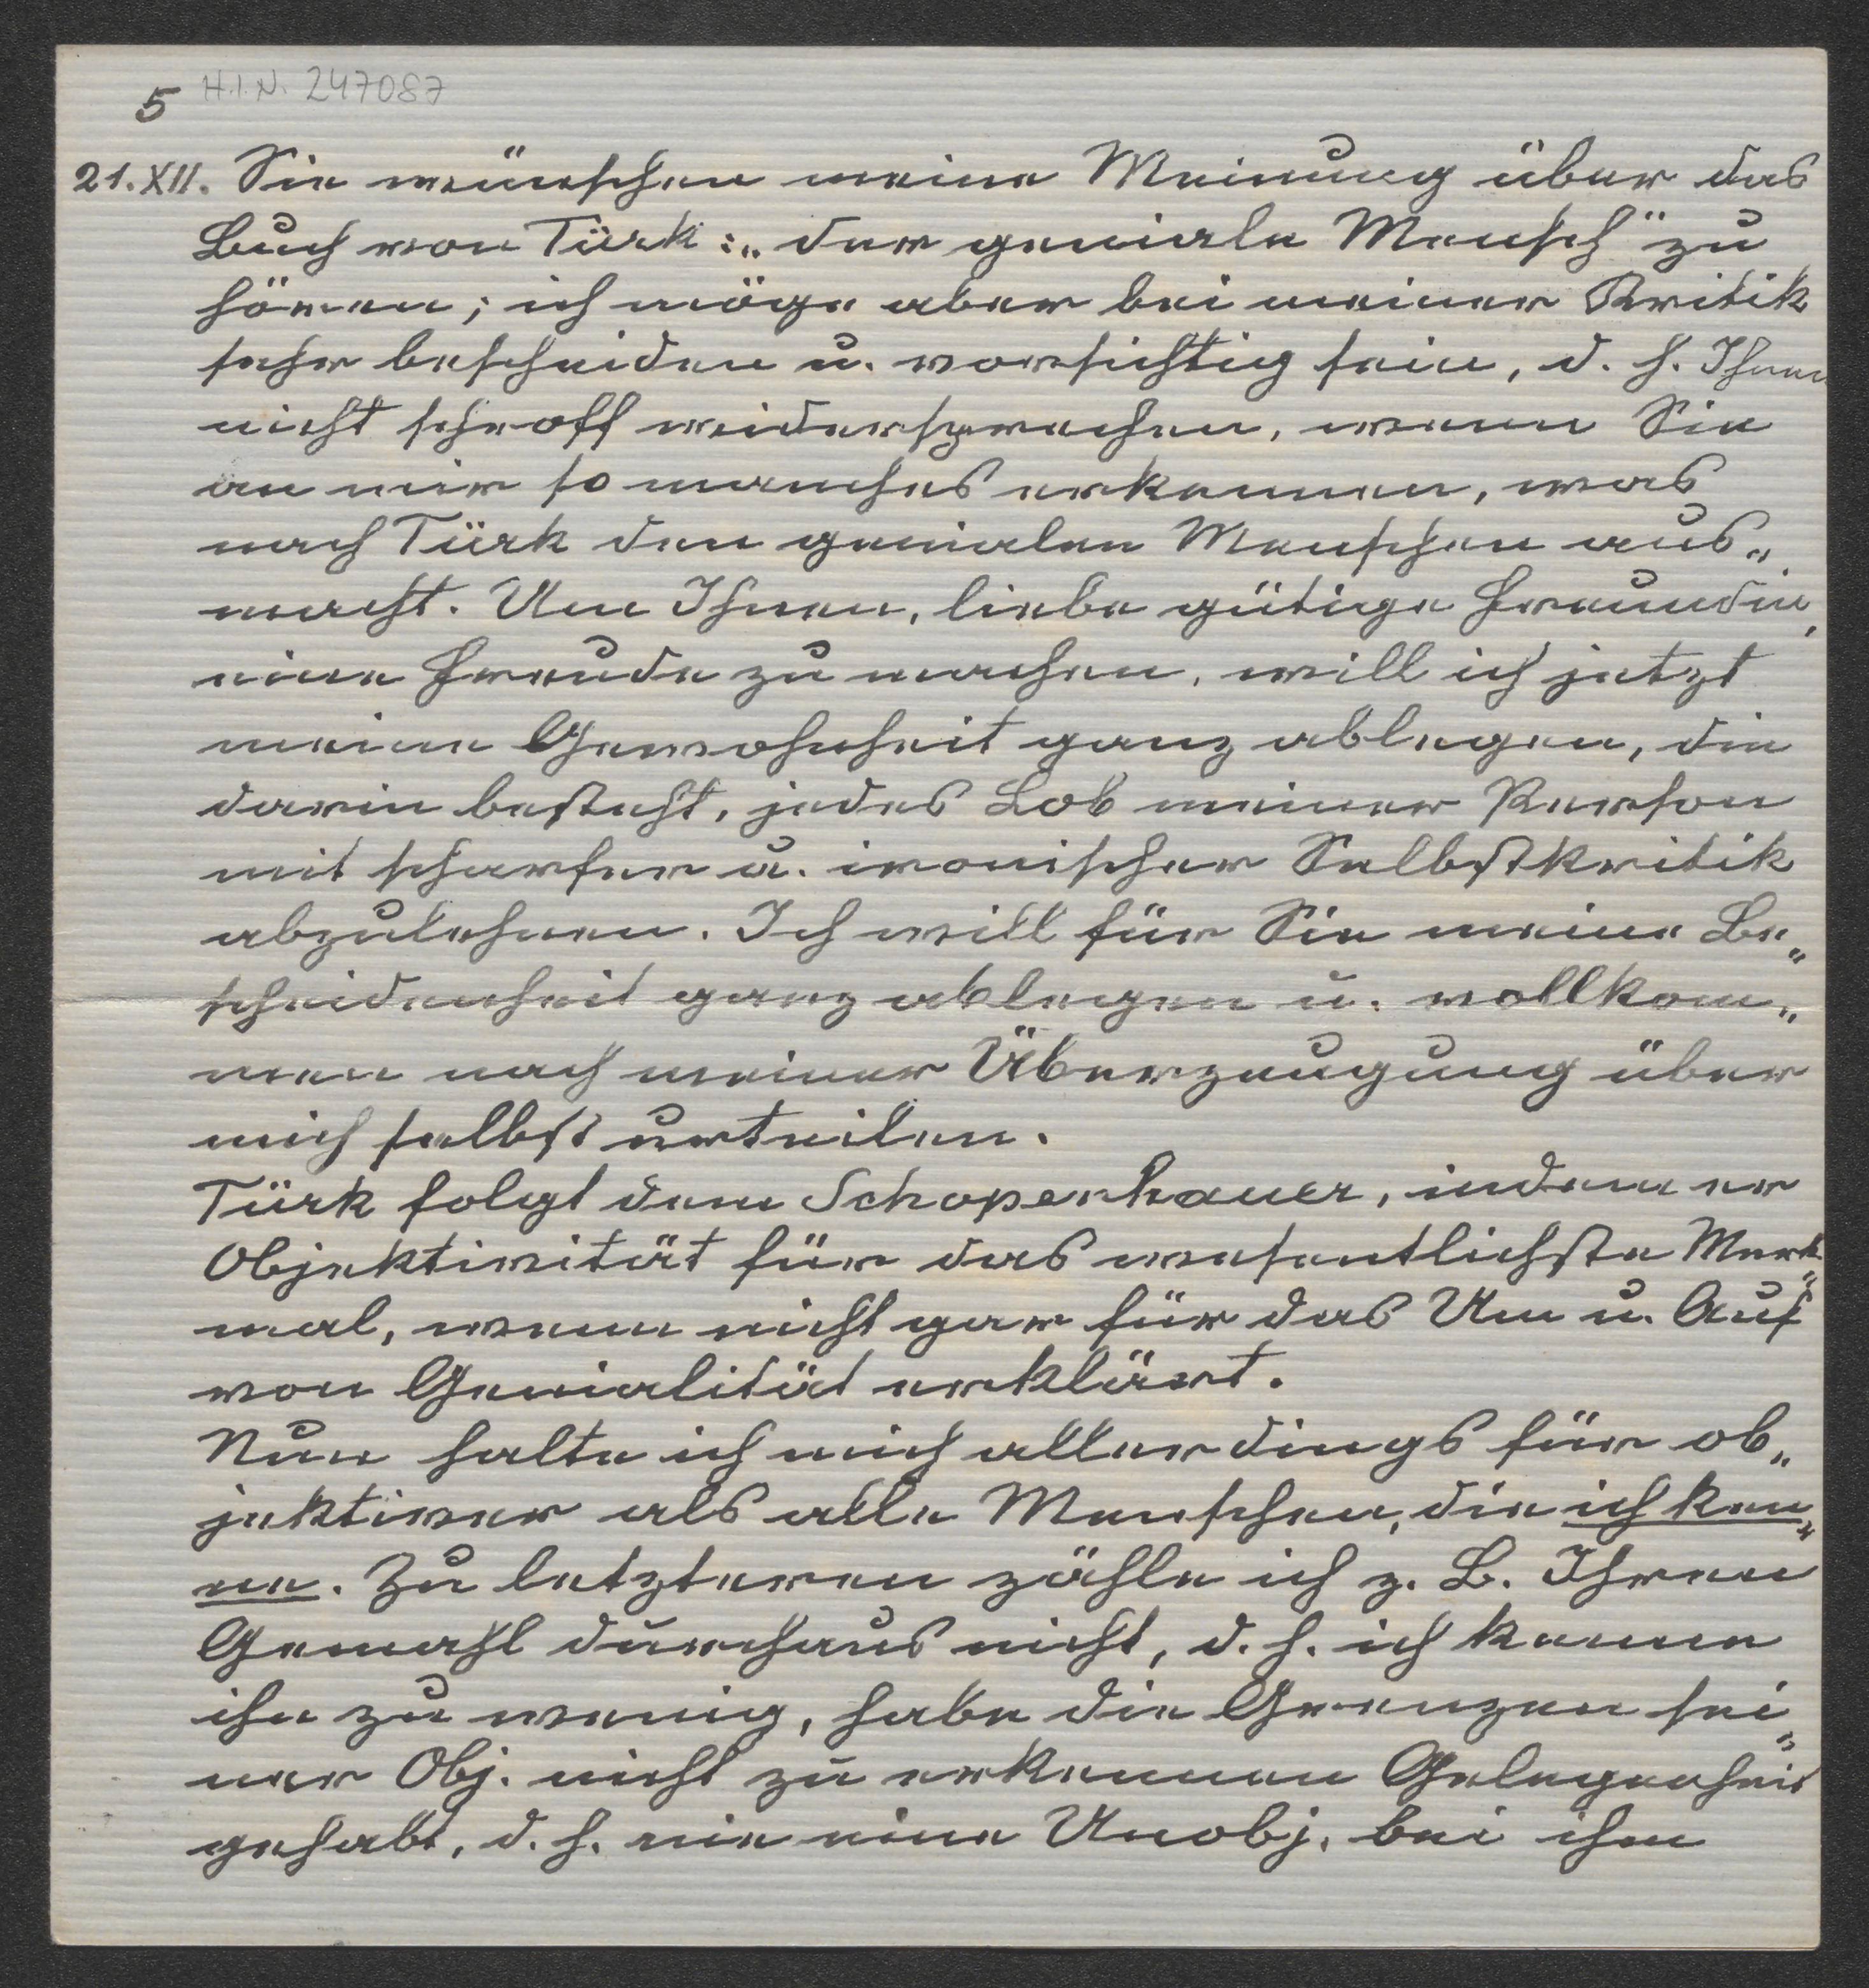 5 H.I.N. 247087
21.XII. Sie wünschen meine Meinung über das
Buch von Türk: „der geniale Mensch" zu
hören; ich möge aber bei meiner Kritik
sehr bescheiden u. vorsichtig sein, d. h. Ihnen
nicht schroff widersprechen, wenn Sie
an mir so manches erkennen, was
nach Türk den genialen Menschen aus„
macht. Um Ihnen, liebe gütige Freundin,
eine Freude zu machen, will ich jetzt
meine Gewohnheit ganz ablegen, die
darin besteht, jedes Lob meiner Person
mit scharfer u. ironischer Selbstkritik
abzulehnen. Ich will für Sie meine Be„
scheidenheit ganz ablegen u. vollkom„
men nach meiner Überzeugung über
mich selbst urteilen.
Türk folgt dem Schopenhauer, indem er
Objektivität für das wesentlichste Merk„
mal, wenn nicht gar für das Um u. Auf
von Genialität erklärt.
Nun halte ich mich allerdings für ob„
jektiver als alle Menschen, die ich ken„
ne. Zu letzteren zähle ich z. B. Ihren
Gemahl durchaus nicht, d. h. ich kenne
ihn zu wenig, habe die Grenzen sei„
ner Obj. nicht zu erkennen Gelegenheit
gehabt, d. h. nie eine Unobj. bei ihm